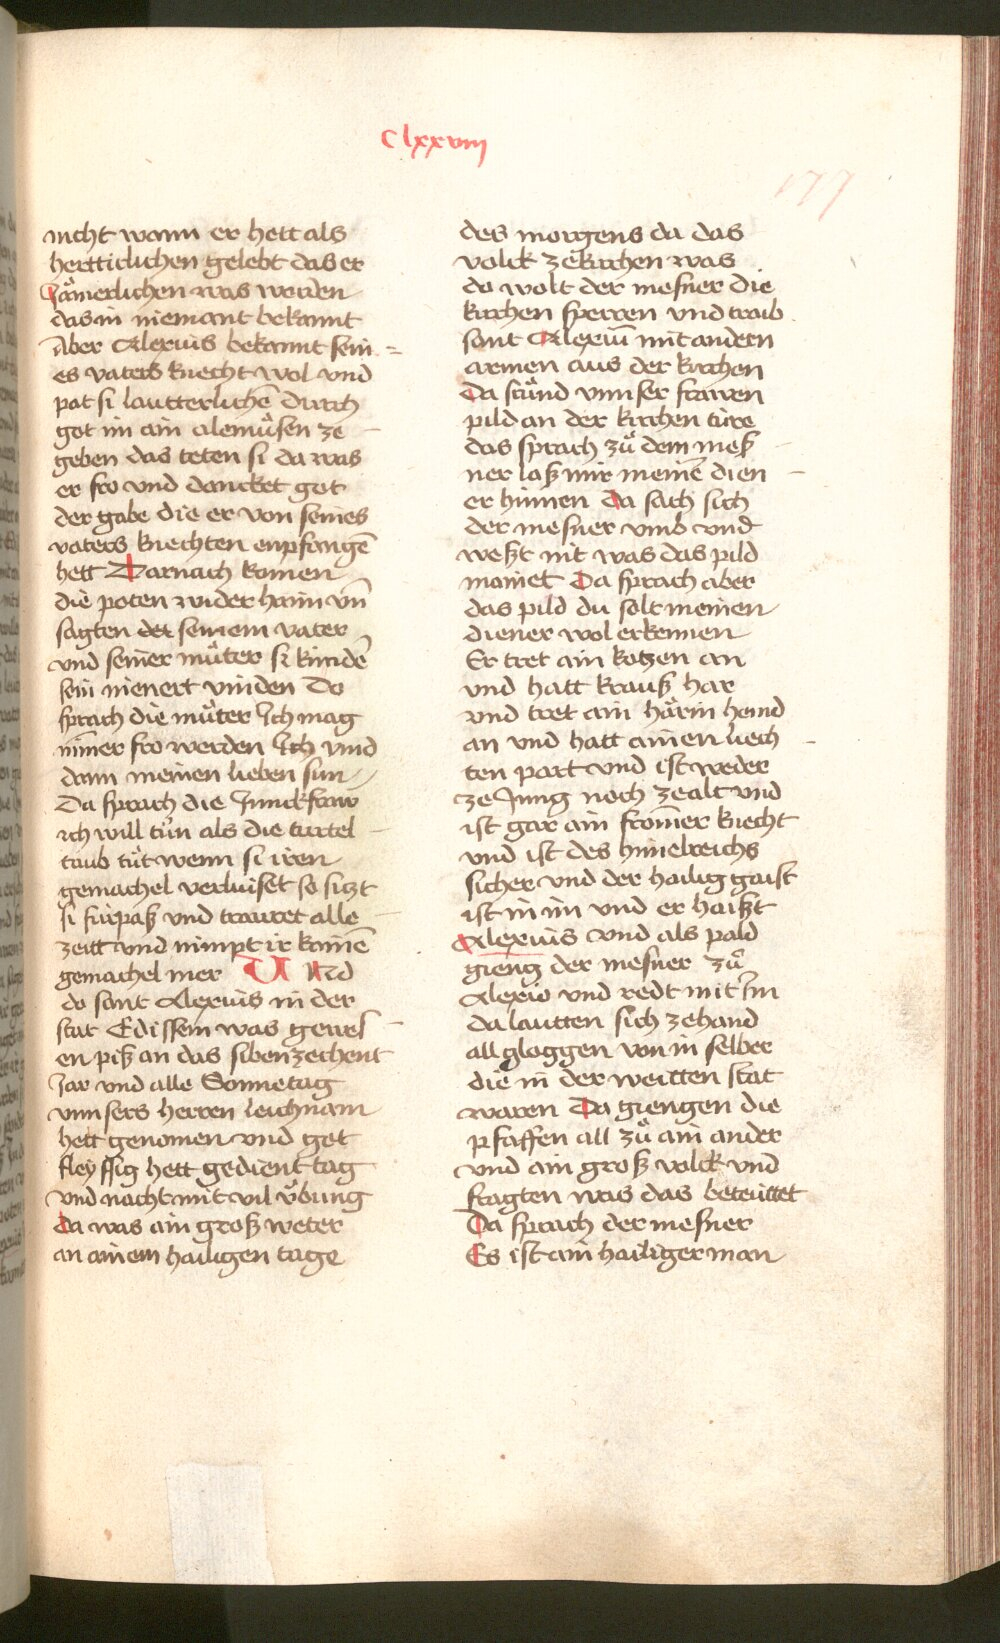 Clxxviii
177
nicht wann er hett als
hertticlichen gelebt das er
Jämerlichen was worden
das in niemant bekannt
Aber Alexius bekannt sein =
es vaters knecht wol vnd
pat si lautterlichē durch
got im ain alemüsen ze
geben das teten si da was
er fro vnd dancket got
der gabe die er von seines
vaters knechten enpfangē
hett Darnach komen
die poten wider haim vn̄
sagten der seinem vater
vnd seiner müter si kündē
sein nienert vinden Do
sprach die müter Ich mag
nīmer fro werden Ich vind
dann meinen lieben sun
Da sprach die Junckfraw
ich will tůn als die turtel
taub tüt wenn si iren
gemachel verluiset so sitzt
si fürpaß vnd trauret alle
zeitt vnd nimpt ir kainē
gemachel mer VNd
do sant Alexius in der
stat Edissem was gewes
en piß an das sibenzechent
Jar vnd alle Sonnetag
vnnsers herren leichnam
hett genomen vnd got
fleyssig hett gedient tag
vnd nacht mit vil vͤbung
Da was ain groß weter
an ainem hailigen tage
des morgens da das
volck zekirchen was
do wolt der mesner die
kirchen sperren vnd traib
sant Alexiū mit andern
armen aus der kirchen
Da stůnd vnnser frawen
pild an der kirchen türe
das sprach zů dem meß
ner laß mir meinē dien
er hinnen Da sach sich
der mesner vmb vnd
weßt nit was das pild
mainet Da sprach aber
das pild du solt meinen
diener wol erkennen
Er tret ain kotzen an
vnd hatt krauß har
vnd tret ain härin hemd
an vnd hatt ainen liech
ten part vnd ist weder
ze Jung noch ze alt vnd
ist gar ain fromer knecht
vnd ist des himelreichs
sicher vnd der hailig gaist
ist in im vnd er haißt
Alexius vnd als pald
gieng der mesner zů
Alexio vnd redt mit Im
da lautten sich zehand
all gloggen von in selber
die in der weitten stat
waren Da giengen die
pfaffen all zů ain ander
vnd ain groß volck vnd
fragten was das beteuttet
Da sprach der mesner
Es ist ain hailiger man